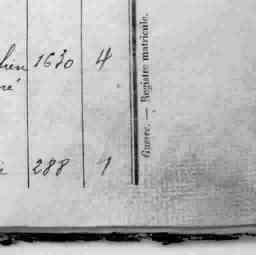 1630 4
288 1
Guerre. — Registre matricule.